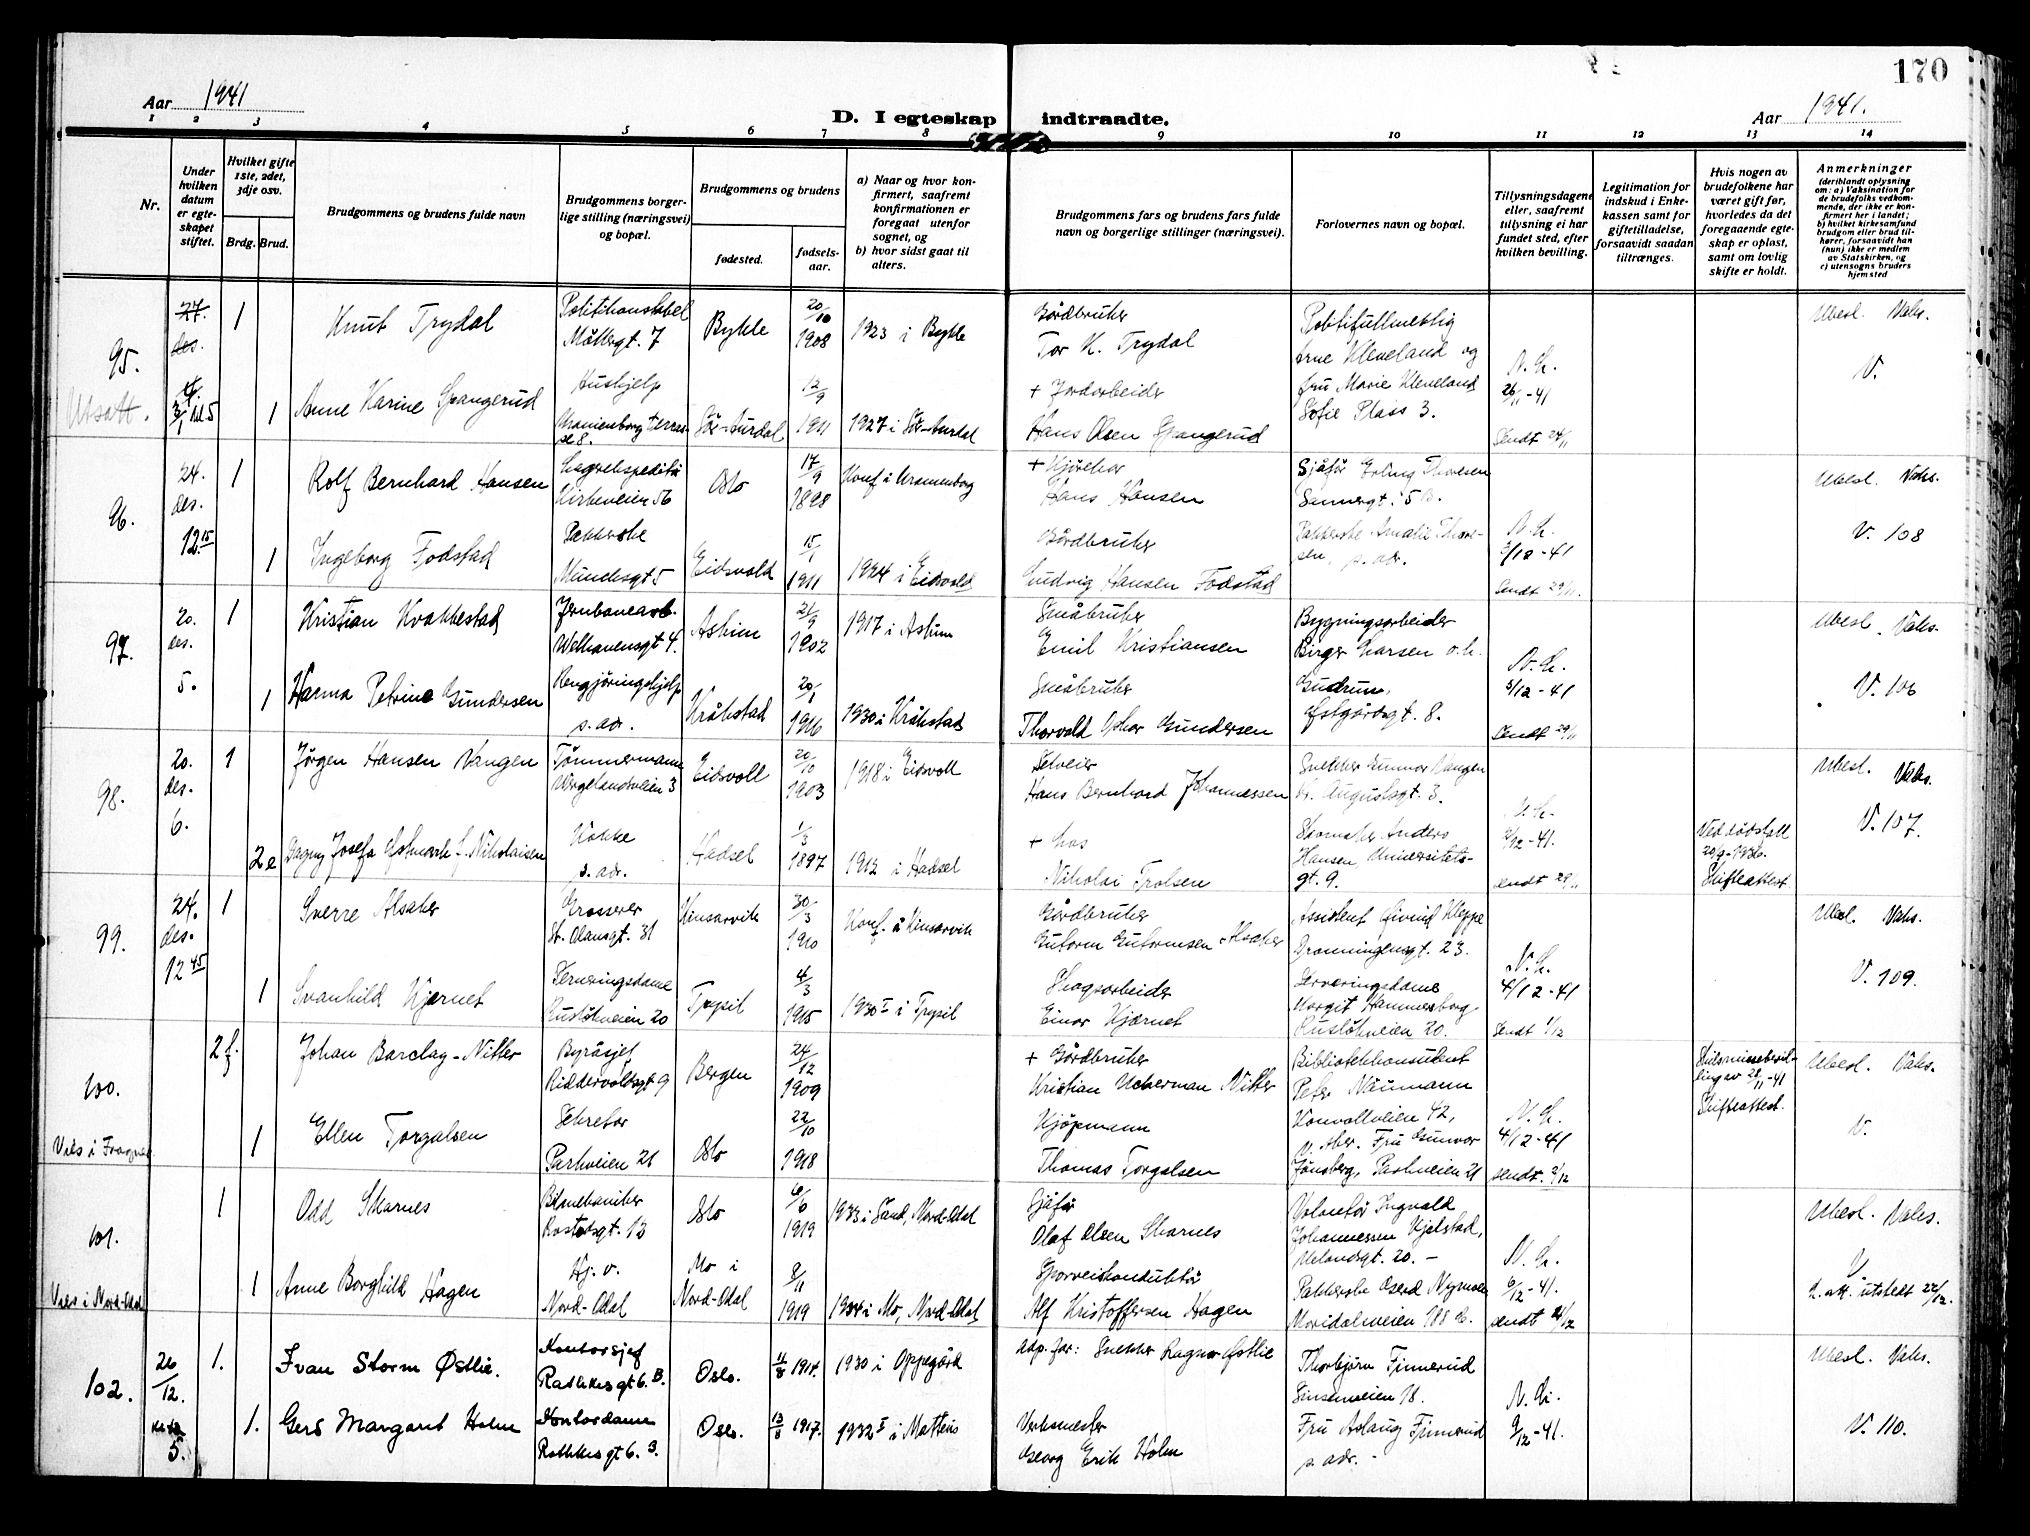 170
Aar 1941
D. I egteskap indtraadte.
Aar 1941.
1 2 3 4 5 6 7 8 9 10 11 12 13 14
Nr.
Under hvilken datum er egteskapet stiftet.
Hvilket gifte 1ste, 2det, 3dje osv.
Brdg. Brud.
Brudgommens og brudens fulde navn
Brudgommens borgerlige stilling (næringsvei) og bopæl.
Brudgommens og brudens
fødested.
fødselsaar.
a) Naar og hvor konfirmert, saafremt konfirmationen er foregaat utenfor sognet, og
b) hvor sidst gaat til alters.
Brudgommens fars og brudens fars fulde navn og borgerlige stillinger (næringsvei).
Forlovernes navn og bopæl.
Tillysningsdagene eller, saafremt tillysning ei har fundet sted, efter hvilken bevilling.
Legitimation for indskud i Enkekassen samt for giftetilladelse, forsaavidt saadan tiltrænges.
Hvis nogen av brudefolkene har været gift før, hvorledes da det foregaaende egteskap er opløst, samt om lovlig skifte er holdt.
Anmerkninger (deriblandt oplysning om: a) Vaksination for de brudefolks vedkommende, der ikke er konfirmert her i landet; b) hvilket kirkesamfund brudgom eller brud tilhører, forsaavidt han (hun) ikke er medlem av Statskirken, og c) utensogns bruders hjemsted
95.
Utsatt.
27. des.
1 Knut Trydal
Politikonstabel
Møllergt. 7
Bykle
20/10 1908
1923 i Bykle
Gårdbruker
Tor K. Trydal
Politifullmektig
Arne Kleveland og
fru Marie Kleveland
Sofie Plass 3.
N. K.
26/11-41
sendt 24/11
Ubesl. Vaks.
V.
1 Anne Karine Spangerud
Hushjelp
Uranienborg terrasse 8.
Sør-Aurdal
12/9 1911
1927 i Sør-Aurdal
+ Jordarbeider
Hans Olsen Spangerud
96.
24. des. 12.15
1 Rolf Bernhard Hansen
Lagerekspeditør
Kirkeveien 56
Oslo
17/9 1898
Konf i Uranienborg
+ Kjørekar
Hans Hansen
Sjåfør Erling Thoresen
Sannergt. 5
N. K.
3/12-41
sendt 29/11.
Ubesl. Vaks.
V. 108
1 Ingeborg Fodstad
Pakkerske
Munchsgt 5
Eidsvold
15/1 1911
1924 i Eidsvold
Gårdbruker
Ludvig Hansen Fodstad
Pakkerske Amalie Thoresen, s. adr.
97.
20. des. 5.
1 Kristian Kvakkestad
Jernbanearb.
Welhavensgt 4.
Askim
21/9 1902
1917 i Askim
Småbruker
Emil Kristiansen
Bygningsarbeider
Birger Larsen o.h.
Gudrun,
Østgårdsgt. 8.
N. K.
3/12-41
sendt 29/11
Ubesl. Vaks.
V. 106
1 Hanna Petrine Gundersen
Rengjøringshjelp
s. adr.
Kråkstad
20/1 1916
1930 i Kråkstad
Småbruker
Thorvald Oskar Gundersen
98.
20. des. 6.
1 Jørgen Hansen Vangen
Tømmermann
Wergelandsveien 3
Eidsvoll
20/10 1903
1918 i Eidsvoll
Selveier
Hans Bernhard Johannessen
Snekker Gunnar Vangen
kr. Augustsgt. 3.
N. K.
2/12-41.
sendt 29/11
Ubesl. Vaks.
V. 107.
2 e Dagny Josefa Østmark f. Nikolaisen
Kokke
s. adr.
Hadsel
1/3 1897
1912 i Hadsel
+ Los
Nikolai Trolsen
Skomaker Anders
Hansen Universitetsgt. 9.
Ved dødsfall
20/9-1936.
Skifteattest.
99.
24. des. 12 45
1 Sverre Alsaker
Grosserer
St. Olavsgt. 31
Kinsarvik
30/3 1910
Konf. i Kinsarvik
Gårdbruker
Gutorm Gutormsen Alsaker
Assistent Øivind Kleppe
Dronningensgt. 23.
N. K.
4/12-41
sendt 1/12
Ubesl. Vaks.
V. 109.
1 Svanhild Kjernet
Serveringsdame
Ruseløkveien 20
Trysil
4/3 1915
1930 I i Trysil
Skogsarbeider
Einar Kjærnet
Serveringsdame
Margit Hammersborg
Ruseløkveien 20.
100.
Vies i Frogner
2 f. Johan Barclay-Nitter
Byråsjef
Riddervoldsgt 9
Bergen
24/12 1909
+ Gårdbruker
Kristian Uckerman Nitter
Bibliotekkonsulent
Peter Naumann
Konvallveien 42,
V. Aker. Fru Gunvor
Jønsberg, Parkveien 21
N. K.
4/12-41
sendt. 2/12
Skilsmissebevilling av 28/11-41
Skifteattest.
Ubesl. Vaks.
V.
1 Ellen Torgalsen
Sekretær
Parkveien 21
Oslo
22/10 1918
Kjøpmann
Thomas Torgalsen
101.
Vies i Nord-Odal
1 Odd Skarnes
Bilmekaniker
Rostedsgt. 13
Oslo
6/6 1919
1933 i Sand, Nord-Odal
Sjåfør
Olaf Olsen Skarnes
Volontør Ingvald
Johannessen Kjelstad,
Uelandsgt. 20. -
N. K.
6/12-41.
sendt 4/12
Ubesl. Vaks.
V
L. att. utstedt 22/12.
1 Anne Borghild Hagen
Hj. v.
Nord-Odal
Mo i Nord-Odal
8/11 1919
1934 i Mo, Nord-Odal
Sporveiskonduktør
Alf Kristoffersen Hagen
Pakkerske Oserd Nymoen
Maridalsveien 188
102.
26/12. 5.
1. Ivan Storm Østlie.
Kontorsjef
Rathkesgt 6. B.
Oslo.
11/8 1914.
1930 i Oppegård
Adp. far: Snekker Ragnar Østlie
Thorbjørn Finnerud
Sinsenveien 18.
Fru Aslaug Finnerud
s. adr.
N. K.
9/12-41.
Ubesl. Vaks.
V. 110.
1. Gerd Margaret Holm
Kontordame
Rathkesgt 6. B
Oslo.
13/8 1917.
1932 I i Matteus
Verksmester
Georg Erik Holm